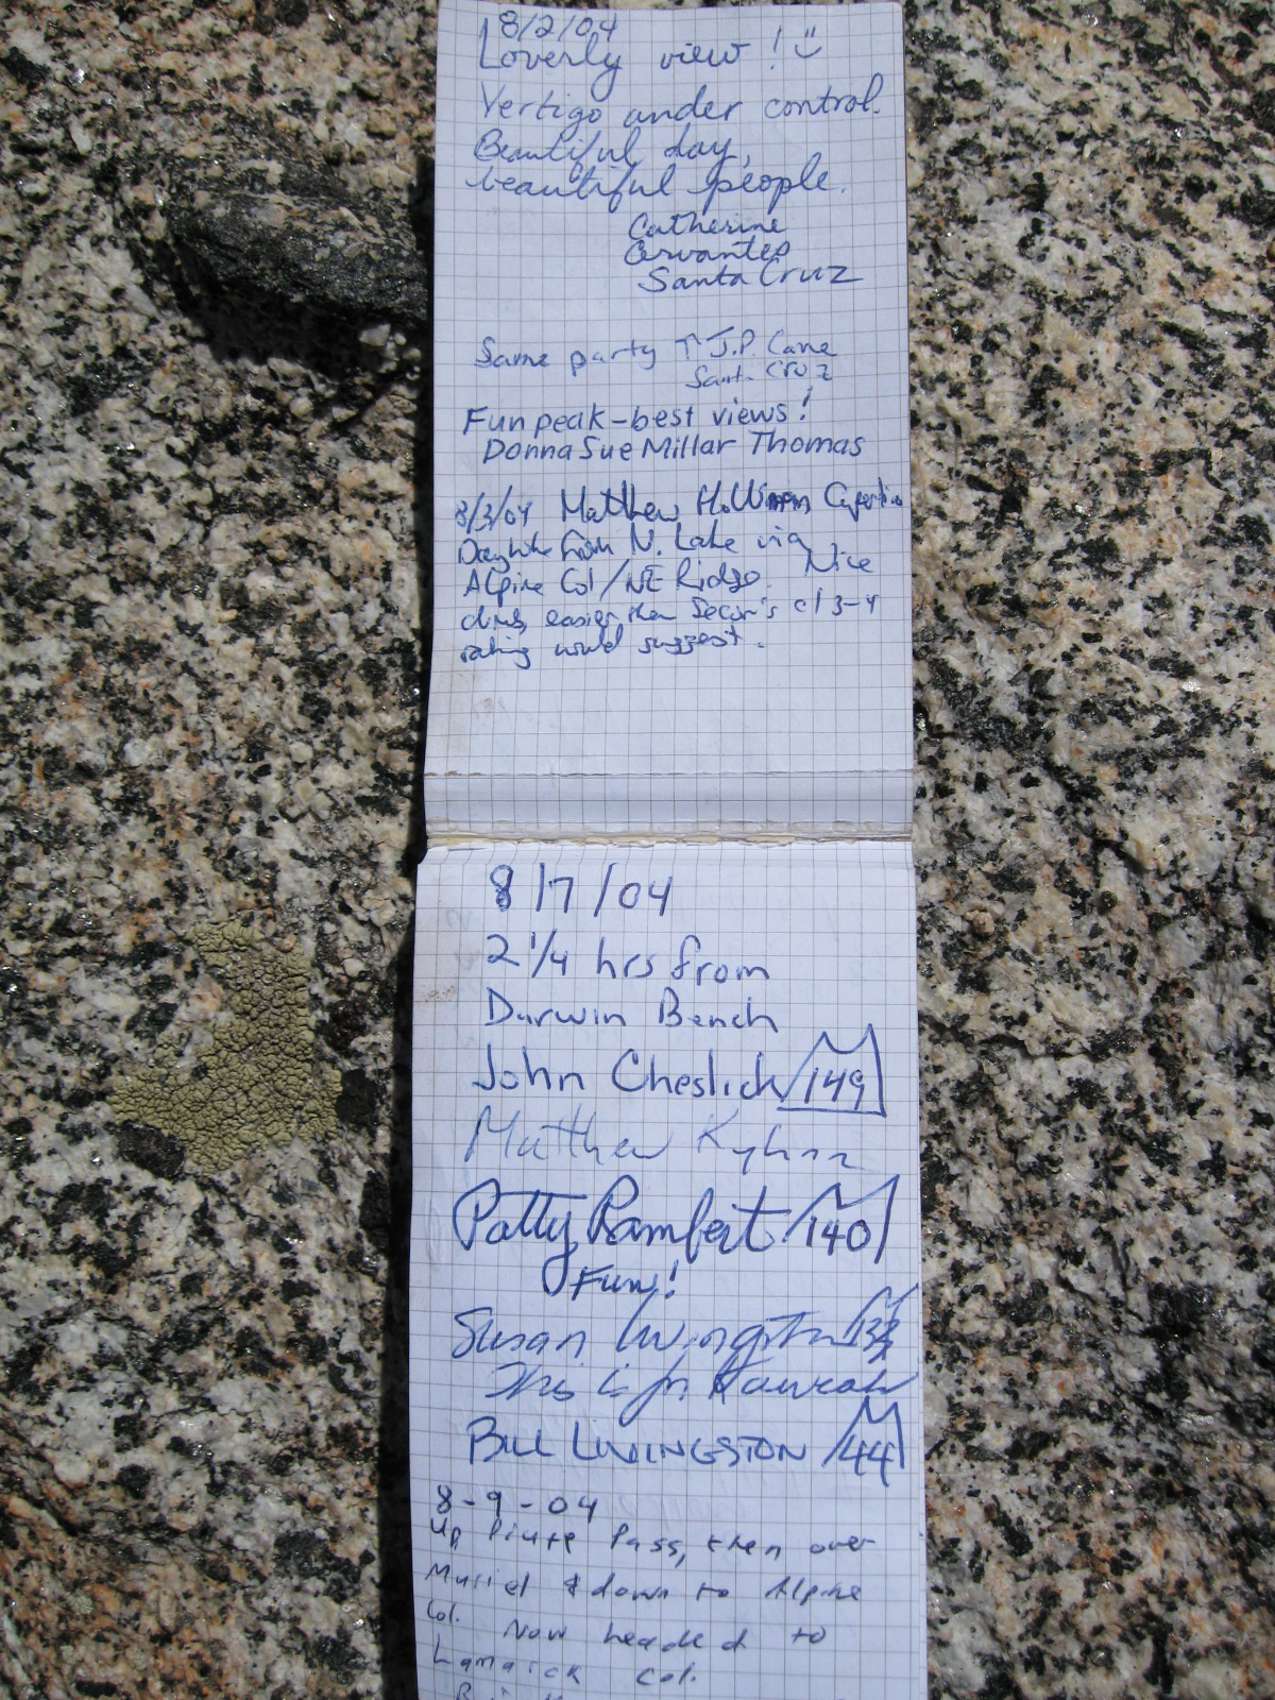 8/2/04
Loverly view! ツ
Vertigo under control.
Beautiful day,
beautiful people.
Catherine
Cervantes
Santa Cruz
Same party ↑ J.P. Cane
Santa Cruz
Fun peak - best views!
Donna Sue Millar Thomas
8/3/04 Matthew Holliman Cupertino
Dayhike from N. Lake via
Alpine Col/NE Ridge. Nice
climb, easier than Secor's cl 3-4
rating would suggest.
8/7/04
2 1/4 hrs from
Darwin Bench
John Cheslick 149
Matthew
Patty Rambert 140
Fun!
Susan Livingston 133
This is for
Bill Livingston 144
8-9-04
Up Piute Pass, then over
Muriel & down to Alpine
Col. Now headed to
Lamarck Col.